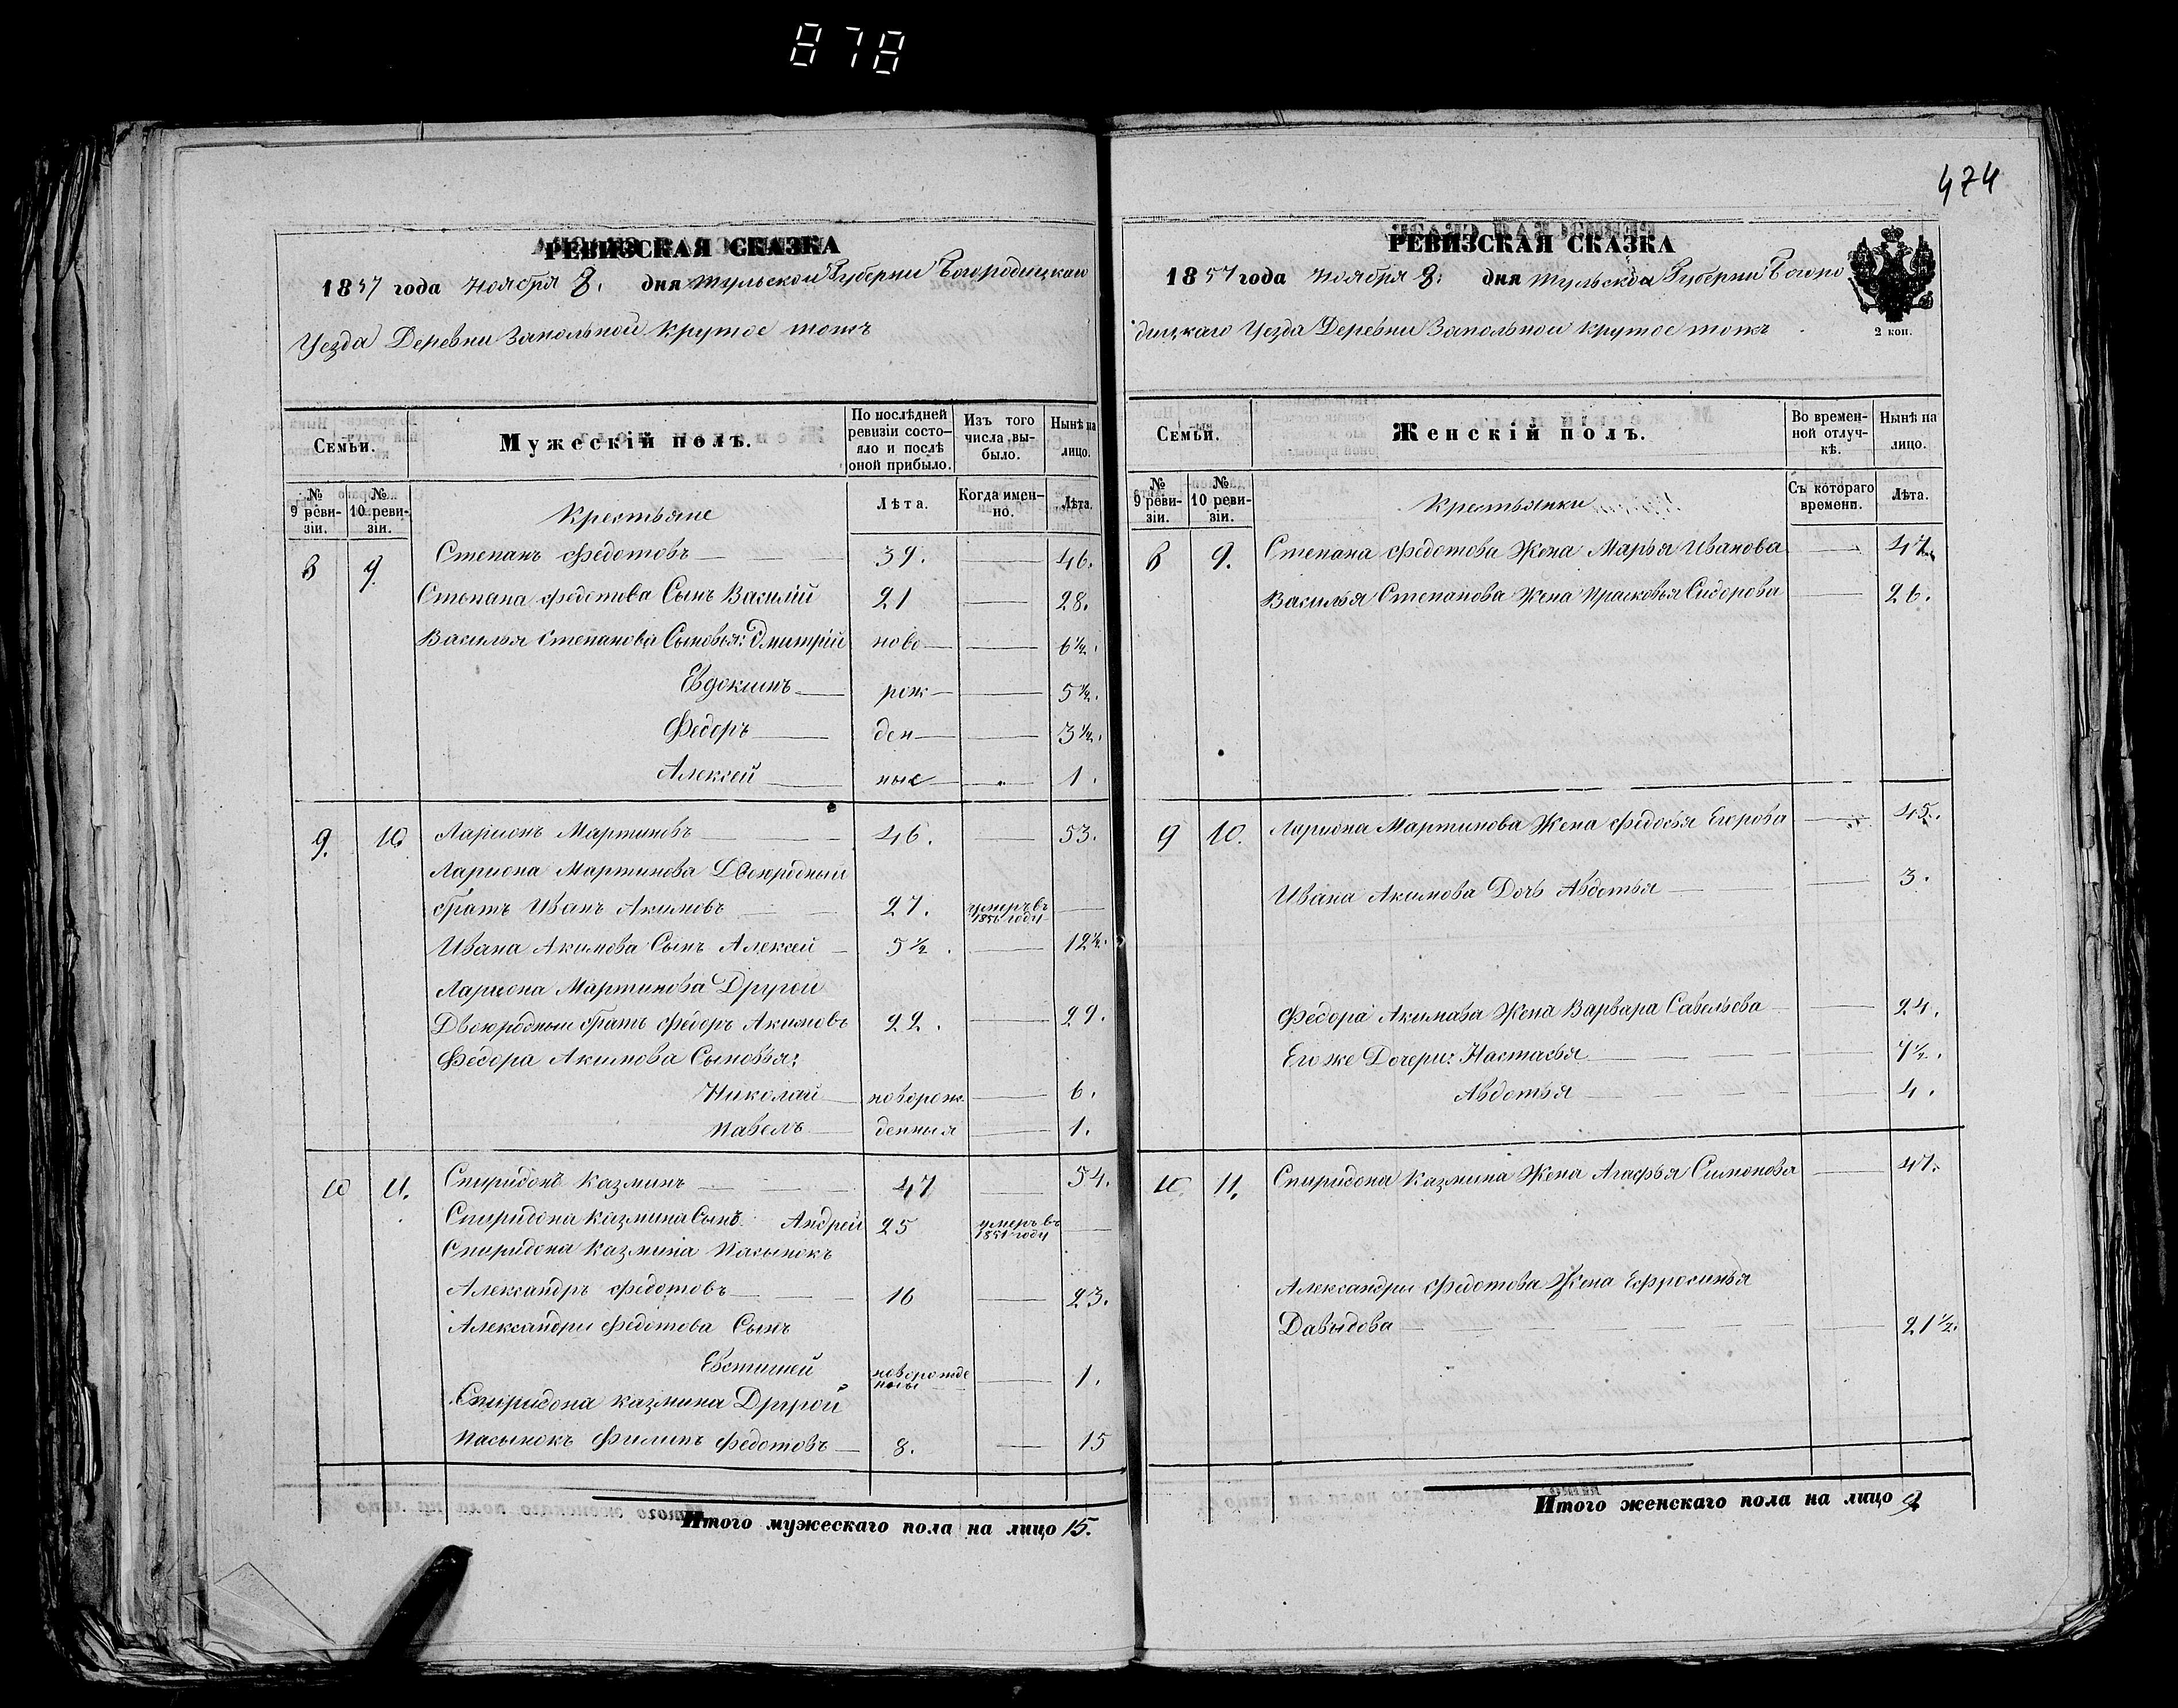 878
РЕВИЗСКАЯ СКАЗКА
1857 года Ноября 8. дня Тульской Губернии Богородицкаго
Уезда Деревни Запольной Крутое тожъ
Семьи.
Мужескій полъ.
По послѣдней ревизіи состояло и послѣ оной прибыло.
Изъ того числа выбыло.
Нынѣ на лицо.
№ 9 ревизіи.
№ 10 ревизіи.
Крестьяне
Лѣта.
Когда именно.
Лѣта.
8 9. Степанъ Федотовъ 39. 46.
Степана Федотова Сынъ Василій 21 28.
Василья Степанова Сыновья: Дмитрій ново 6½.
Евдокимъ рож 5½.
Федоръ ден 3½.
Алексей ные 1.
9. 10 Ларіонъ Мартиновъ 46. 53.
Лариона Мартинова Двоюродный
братъ Иванъ Акимовъ 27. умеръ въ 1856 году
Ивана Акимова Сынъ Алексей 5½. 12½.
Лариона Мартинова Другой
Двоюродный братъ Федоръ Акимовъ 22. 29.
Федора Акимова Сыновья:
Николай новорож 6.
Павелъ денныя 1.
10 11. Спиридонъ Казминъ 47 54.
Спиридона Казмина Сынъ Андрей 25 умеръ въ 1851 году
Спиридона Казмина Пасынокъ
Александръ Федотовъ 16 23.
Александры Федотова Сынъ
Евстигней новорожде ны 1.
Спиридона Казмина Другой
Пасынокъ Филипъ Федотовъ 8. 15
Итого мужескаго пола на лицо 15.
474
РЕВИЗСКАЯ СКАЗКА
1857 года Ноября 8. дня Тульской Губернии Богоро
дицкаго Уезда Деревни Запольной Крутое тожъ
2 коп.
Семьи.
Женскій полъ.
Во временной отлучкѣ.
Нынѣ на лицо.
№ 9 ревизіи.
№ 10 ревизіи.
Крестьянки
Съ котораго времени.
Лѣта.
8 9. Степана Федотова Жена Марья Иванова 47.
Василья Степанова Жена Прасковья Сидорова 26.
9 10. Лариона Мартинова Жена Федосья Егорова 45.
Ивана Акимова Дочь Авдотья 3.
Федора Акимава Жена Варвара Савельева 24.
Его же Дочери: Настасья 7½.
Авдотья 4.
10. 11. Спиридона Казмина Жена Агафья Симонова 47.
Александры Федотова Жена Ефросинья
Давыдова 21½.
Итого женскаго пола на лицо 9